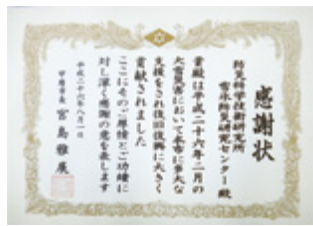 感謝状
防災科学技術研究所
雪氷防災研究センター殿
貴殿は平成二十六年二月の
大雪災害において本市に多大な
支援をされ復旧復興に大きく
貢献されました
ここにそのご厚情とご功績に
対し深く感謝の意を表します
平成二十六年八月一日
甲府市長 宮島雅展